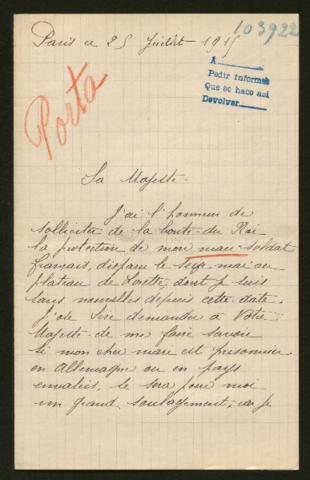 103922
Paris ce 25 Juillet 1915
A
Pedir informes
Que se hace así
Devolver
Porta
Sa Majesté.
J'ai l'honneur de
solliciter de la bonté du Roi
la protection de mon mari soldat
français, disparu le mai au
plateau de Lorette, dont je suis
sans nouvelles depuis cette date.
J'ose Sire demander à Votre
Majesté de me faire savoir
si mon cher mari est prisonnier
en Allemagne ou en pays
envahis, ce sera pour moi
un grand soulagement, car je